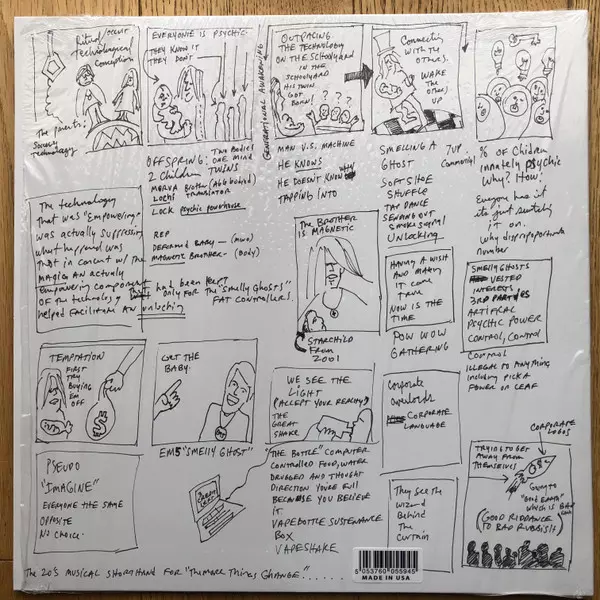 Ritual/occult
Technological
Conception
The parents:
Society
Technology
EVERYONE IS PSYCHIC
THEY KNOW IT
THEY DON'T
GENERATIONAL AWAKENING
OUTPACING
THE TECHNOLOGY
ON THE SCHOOLYARD
IN THE
SCHOOLYARD
HIS TWIN
GOT
BORN!
? ? ?
Connecting
WITH THE
OTHERS.
WAKE
THE
OTHERS
UP
OFFSPRING: TWO BODIES
ONE MIND
2 Children TWINS
MERVA Brother (AGG behind)
LOCHS TRANSLATOR
LOCK psychic powerhouse
REP
DEFORMED BABY — (mind)
MAGNETIC BROTHER - (body)
MAN V.S. MACHINE
HE KNOWS
HE DOESN'T KNOW
TAPPING INTO
SMELLING A
GHOST
7UP
Commercial
SOFT SHOE
SHUFFLE
TAP DANCE
SENDING OUT
SMOKE SIGNAL
UNLOCKING
% OF Children
innately psychic
Why? How?
Everyone has it
its just switching
it on.
Why disproportionate
number
The technology
That was "Empowering"
was actually suppressing
what happened was
that in concert w/ THE
MAGICIAN actually
Empowering component had been kept
OF the technology only FOR THE "Smelly Ghosts"
helped facilitate AN unlocking FAT CONTROLLERS.
The BROTHER
IS MAGNETIC
STARCHILD
FROM
2001
HAVING A WISH
AND MAKING
IT COME
TRUE
NOW IS THE
TIME
POW WOW
GATHERING
SMELLY GHOSTS
VESTED
INTERESTS
3RD PARTIES
ARTIFICIAL
PSYCHIC POWER
CONTROL, CONTROL
CONTROL
ILLEGAL TO ANYTHING
including PICK A
FLOWER OR LEAF
TEMPTATION
FIRST
TRY
BUYING
EM
OFF
GET THE
BABY.
EMS "SMELLY GHOST"
WE SEE THE
LIGHT
(ACCEPT YOUR REALITY)
THE
GREAT
SHAKE
Corporate
Overlords
CORPORATE
LANGUAGE
PSEUDO
"IMAGINE"
EVERYONE THE SAME
OPPOSITE
NO CHOICE
THE BOTTLE" COMPUTER
CONTROLLED FOOD, WATER
DRUGGED AND THOUGHT
DIRECTION YOU'RE FULL
BECAUSE YOU BELIEVE
IT
VAPE BOTTLE SUSTENANCE
BOX
VAPESHAKE
They see the
Wizard
Behind
The
Curtain
CORPORATE
LOGOS
TRYING TO GET
AWAY FROM
THEMSELVES
Going to
which is BAD
(GOOD RIDDANCE
TO BAD RUBBISH)
The 20's MUSICAL SHORTHAND FOR "The more Things Change"......
5 053760 055945
MADE IN USA